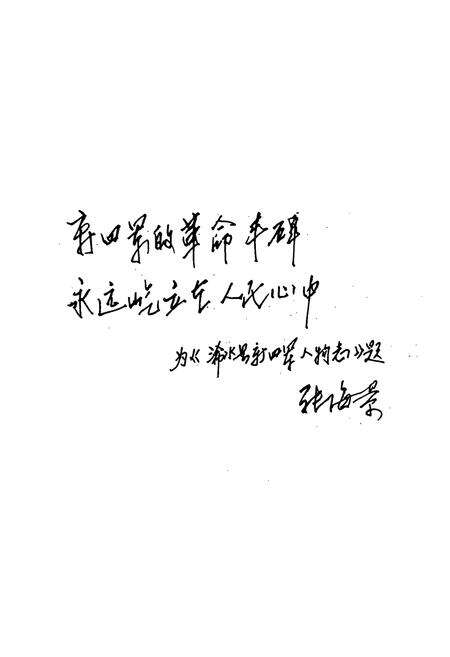 新四军的革命丰碑
永远屹立在人民心中
为《浠水县新四军人物志》题
张海景